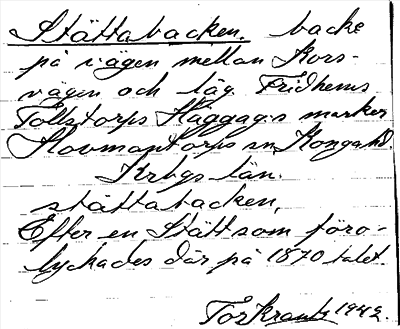 Stättabacken. backe
på vägen mellan Kors-
vägen och läg. Fridhems
Tollstorps Häggags marker
Hovmantorps sn Konga hd
Krbgs län.
stättabacken,
Efter en Stätt som föro-
lyckades där på 1870 talet.
Tor Krantz 1942.